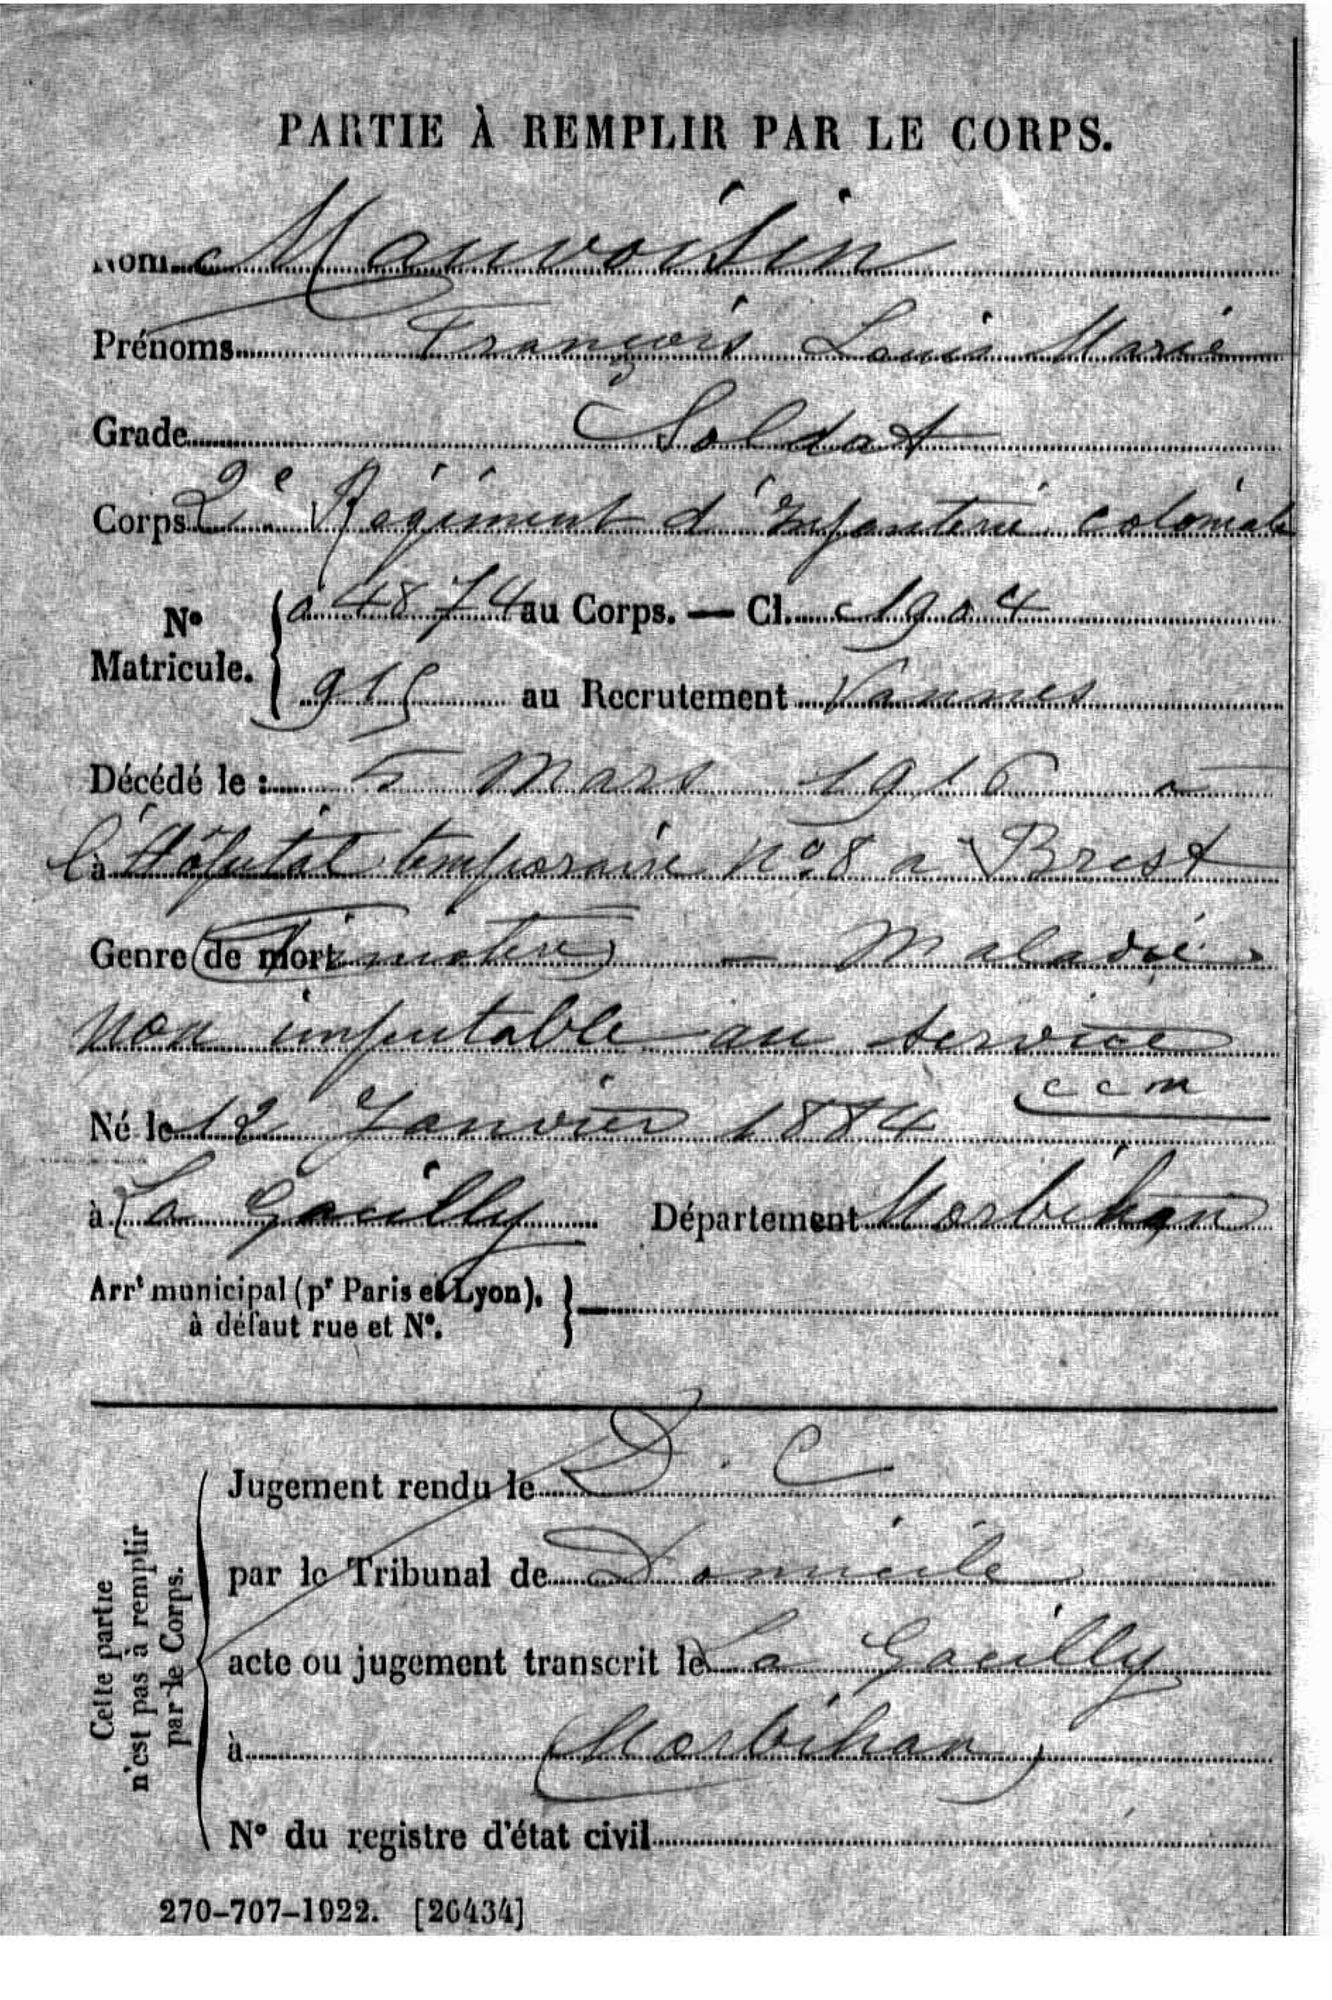 PARTIE À REMPLIR PAR LE CORPS.
Nom Mauvoisin
Prénoms François Louis Marie
Grade Soldat
Corps 2e Régiment d'Infanterie coloniale
No Matricule. { a 4874 au Corps. — Cl. 1904
915 au Recrutement Vannes
Décédé le : 5 Mars 1916 a
à l'Hôpital temporaire no 8 a Brest
Genre de mort (Finistère) - Maladie
non imputable au service
c c m
Né le 12 Janvier 1884
à La Gacilly Département Morbihan
Arrt municipal (pr Paris et Lyon), }
à défaut rue et No.
Cette partie
n'est pas à remplir
par le Corps.
Jugement rendu le D. C
par le Tribunal de Domicile
acte ou jugement transcrit le La Gacilly
à (Morbihan)
No du registre d'état civil
270-707-1922. [26434]